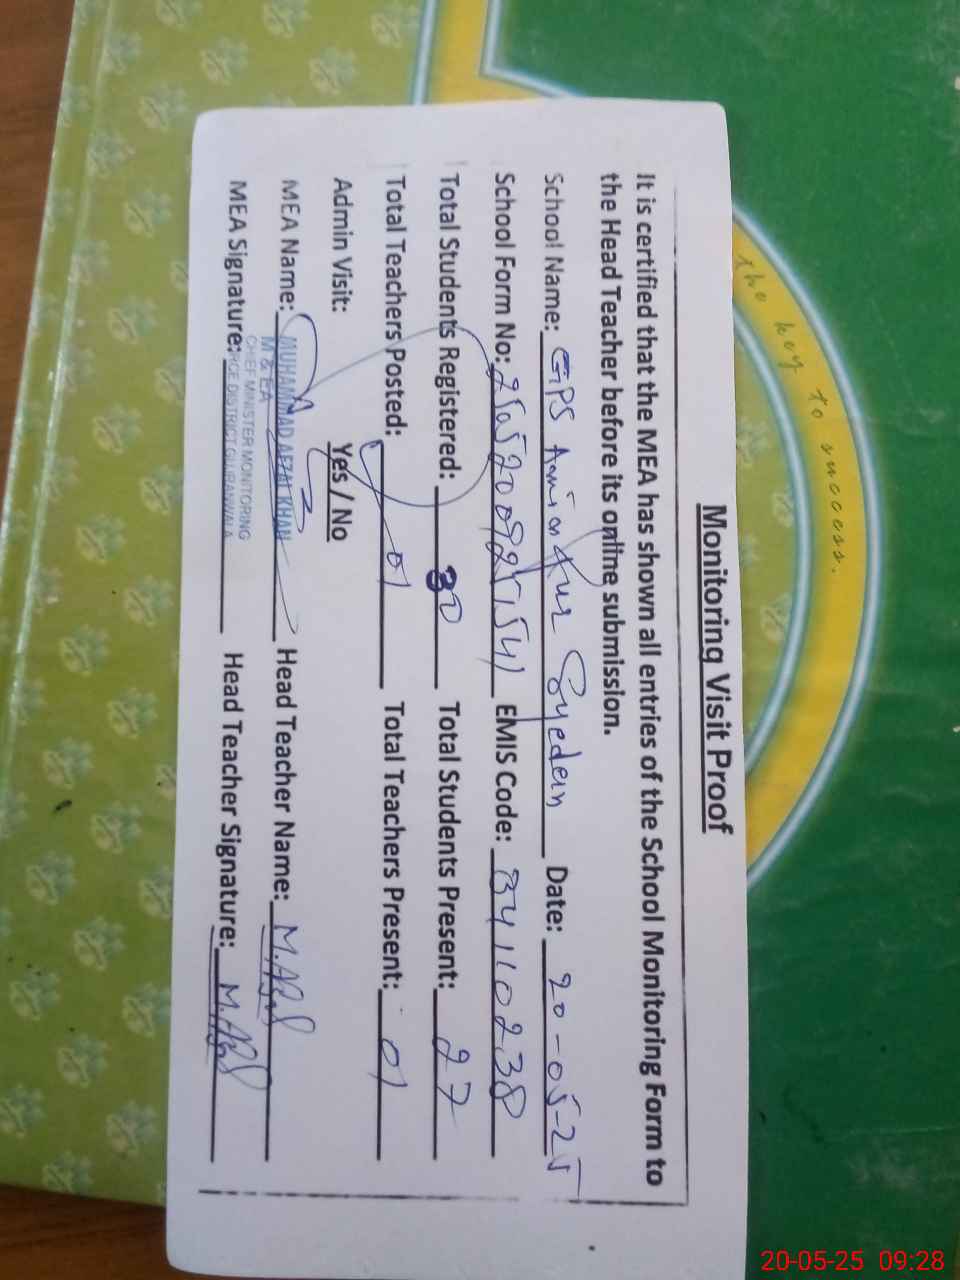 the key to success.
Monitoring Visit Proof
It is certified that the MEA has shown all entries of the School Monitoring Form to
the Head Teacher before its online submission.
School Name: GPS Aminpur Syedan Date: 20-05-25
School Form No: EMIS Code: 34110238
Total Students Registered: 30 Total Students Present: 27
Total Teachers Posted: 01 Total Teachers Present: 01
Admin Visit: Yes / No
MEA Name: MUHAMMAD AFZAL KHAN Head Teacher Name:
M & EA
CHIEF MINISTER MONITORING
MEA Signature: Head Teacher Signature:
DISTRICT GUJRANWALA
20-05-25 09:28